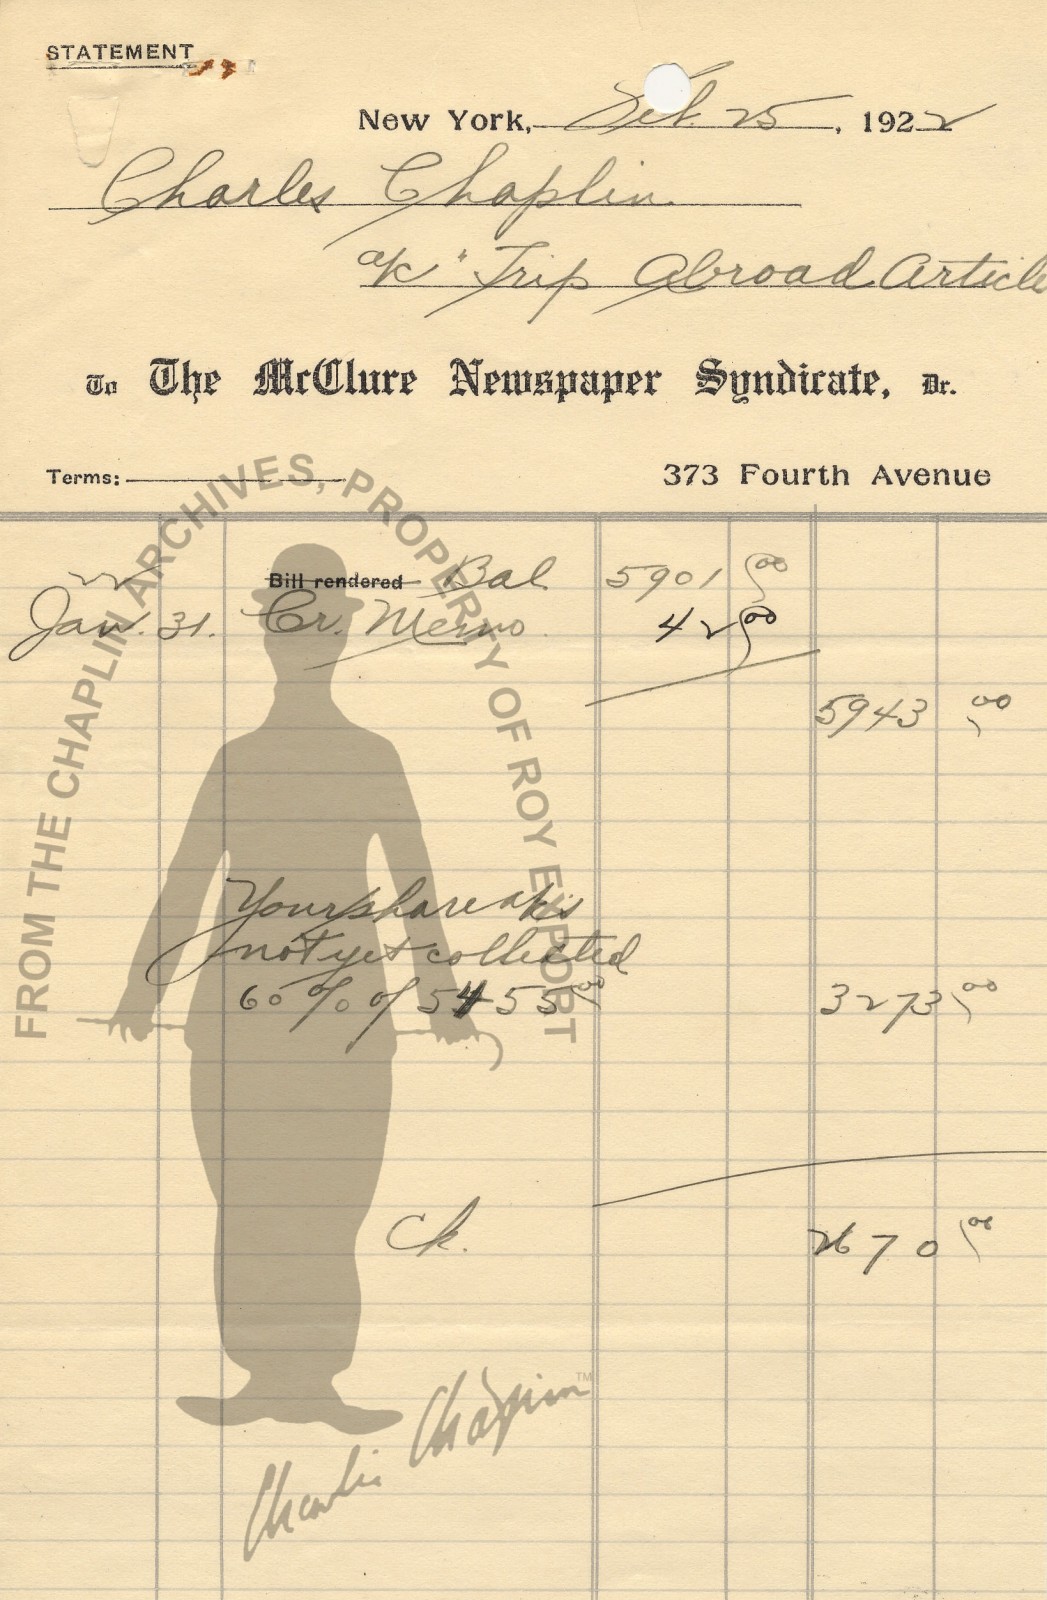 STATEMENT
New York, Feb. 25, 1922
Charles Chaplin
a/c "Trip Abroad Article
To The McClure Newspaper Syndicate, Dr.
Terms: 373 Fourth Avenue
Bill rendered Bal 5901.00
Jan. 31. Cr. Memo 42.00
5943.00
Your share a/cs
not yet collected
60% of 5455.00 3273.00
Ck. 2670.00
FROM THE CHAPLIN ARCHIVES, PROPERTY OF ROY EXPORT
Charlie Chaplin™